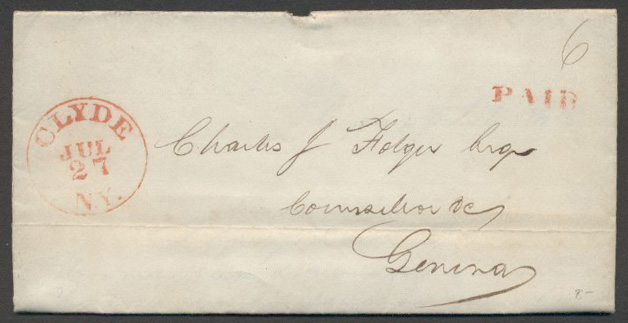 6
PAID
CLYDE
JUL
27
N.Y.
Charles J Folger Esqr
Counsellor &c
Geneva